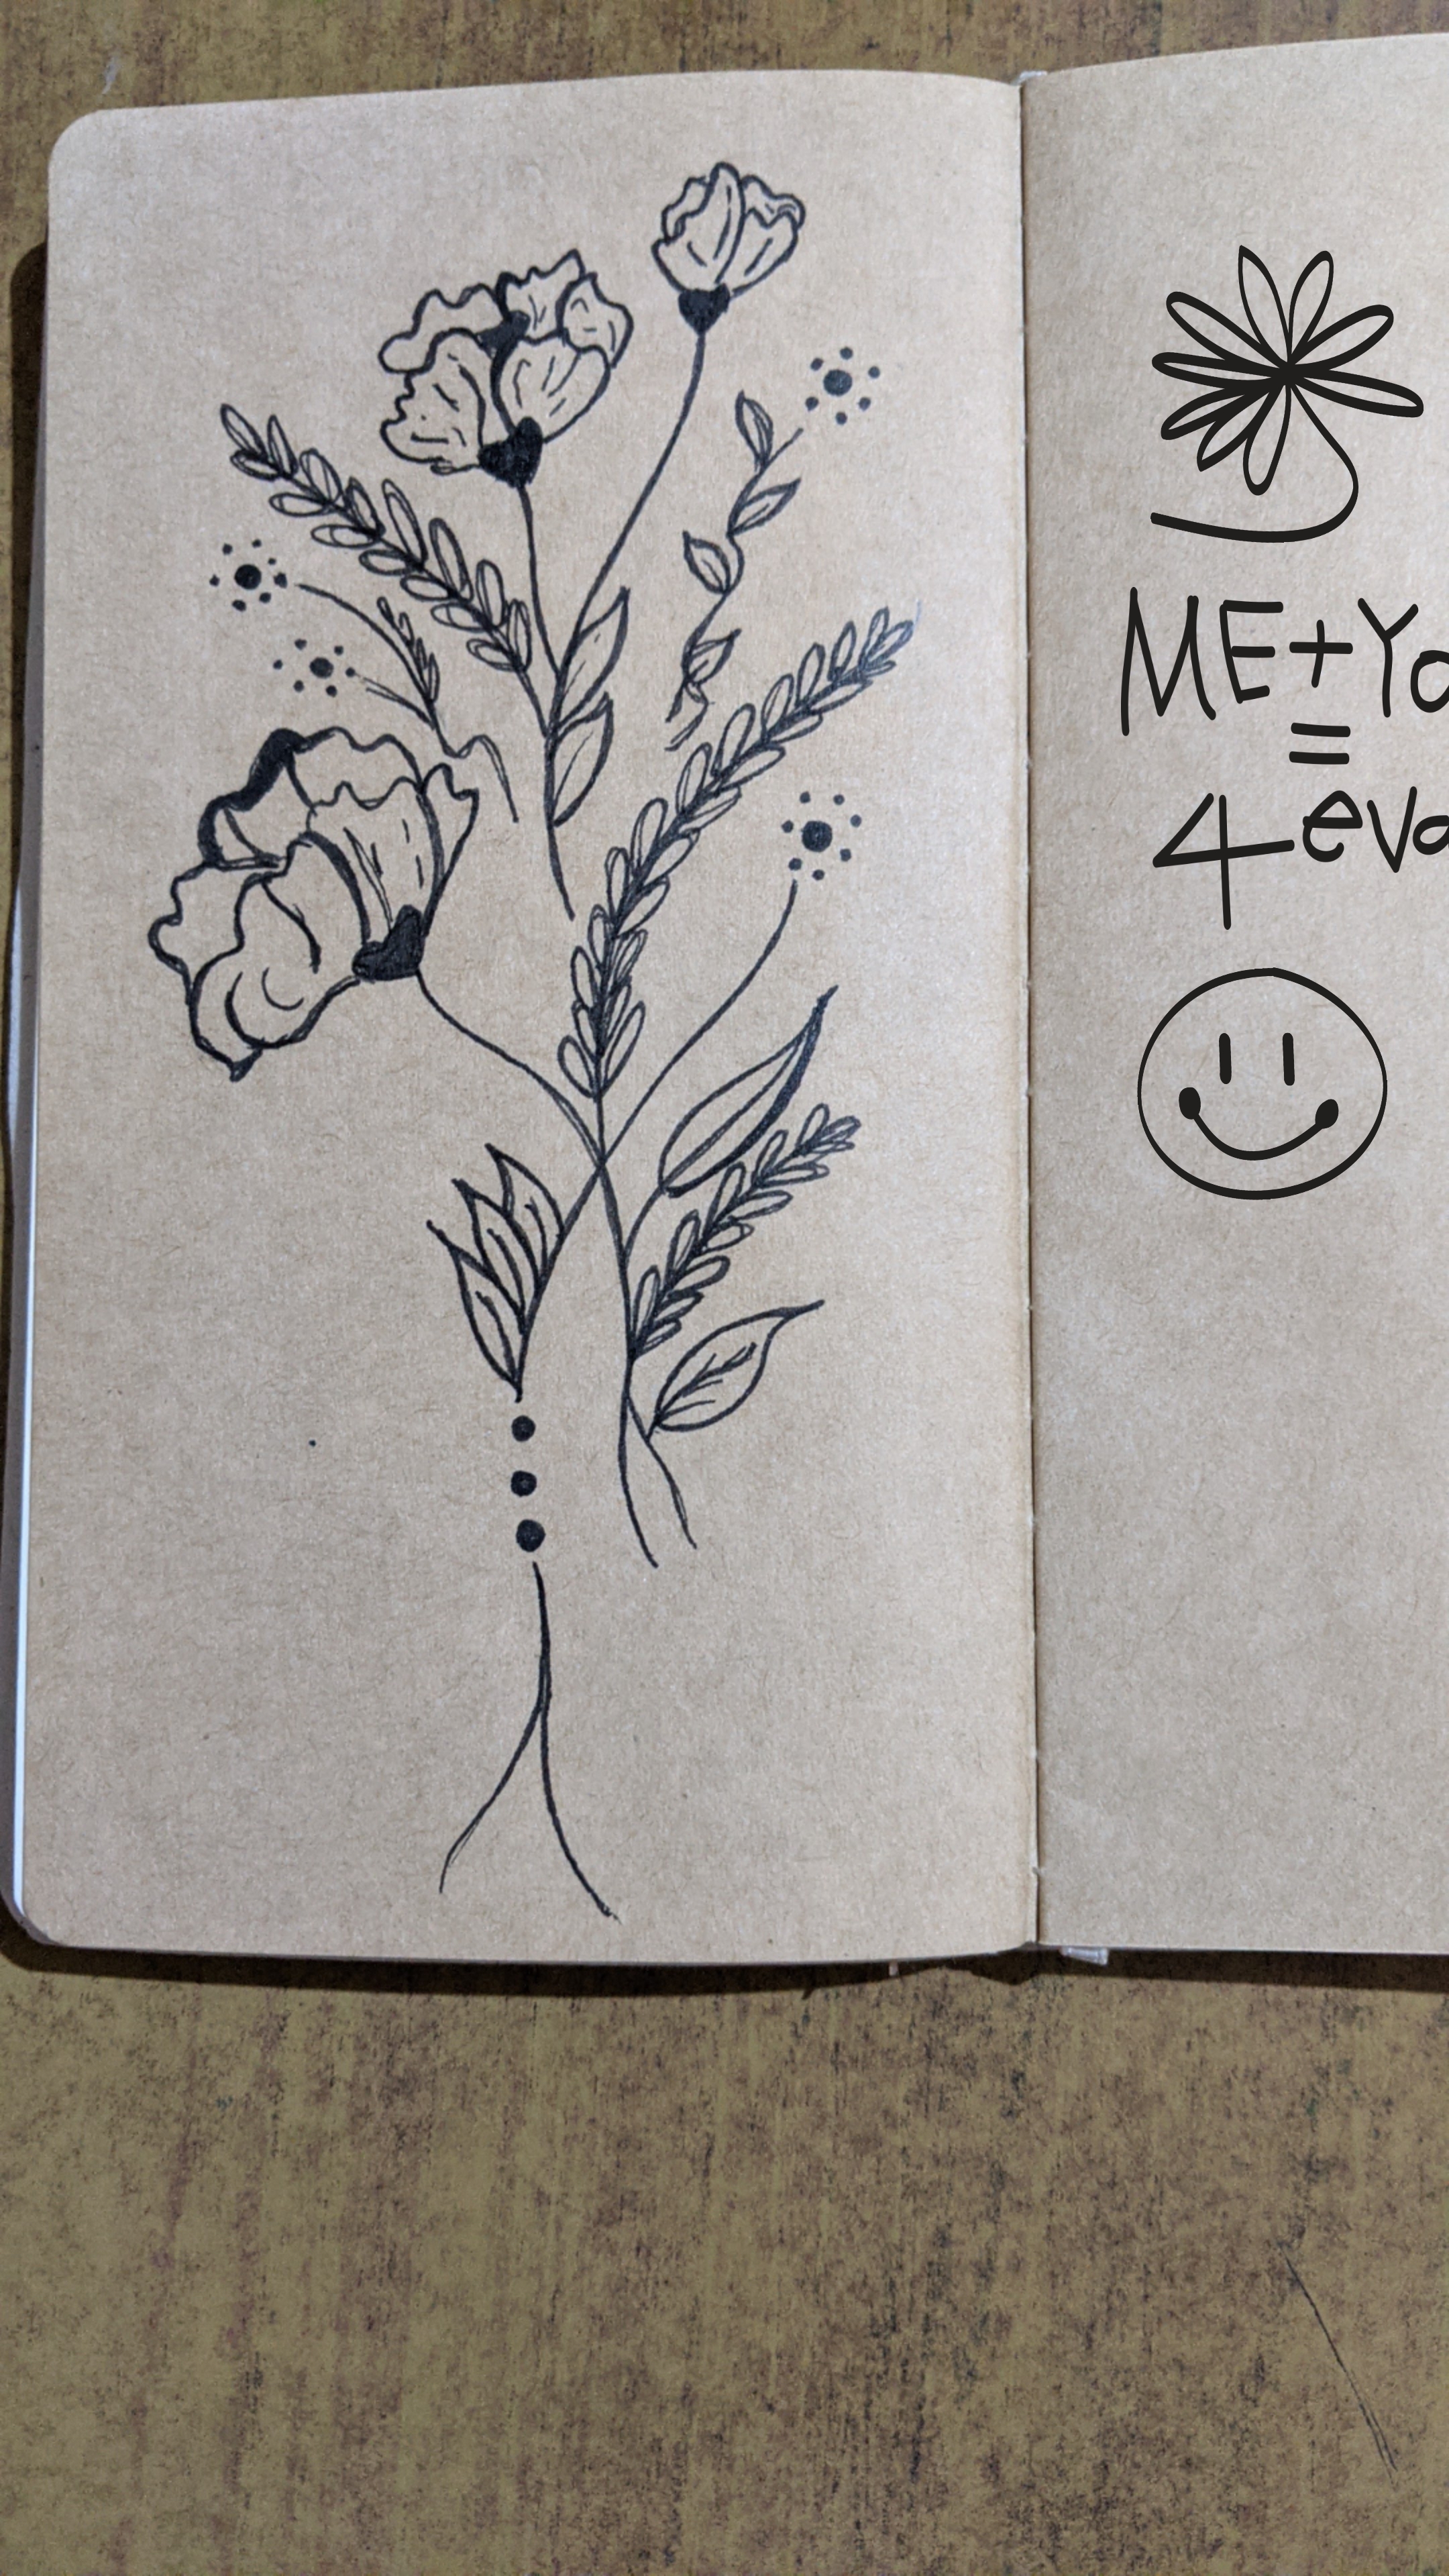 ME+Yo
=
4 eva